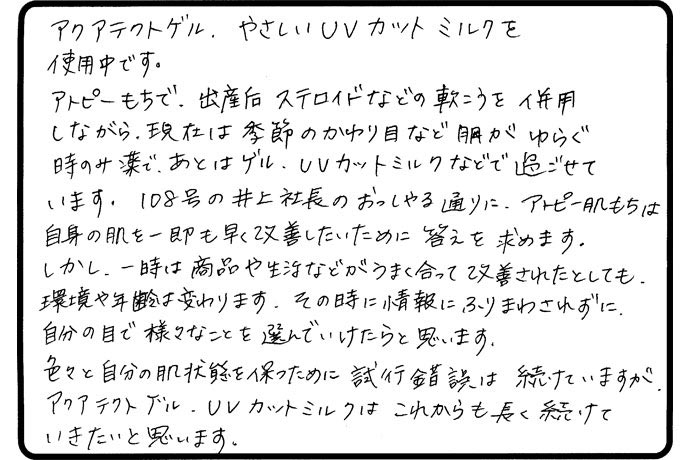 アクアテクトゲル、やさしいUVカットミルクを
使用中です。
アトピーもちで、出産后 ステロイドなどの軟こうを併用
しながら、現在は季節のかわり目など肌がゆらぐ
時のみ薬で、あとはゲル、UVカットミルクなどで過ごせて
います。108号の井上社長のおっしゃる通りに、アトピー肌もちは
自身の肌を一即も早く改善したいために答えを求めます。
しかし、一時は商品や生活などがうまく合って改善されたとしても、
環境や年齢は変わります。その時に情報にふりまわされずに、
自分の目で様々なことを選んでいけたらと思います。
色々と自分の肌状態を保つために試行錯誤は続けていますが、
アクアテクトゲル、UVカットミルクはこれからも長く続けて
いきたいと思います。